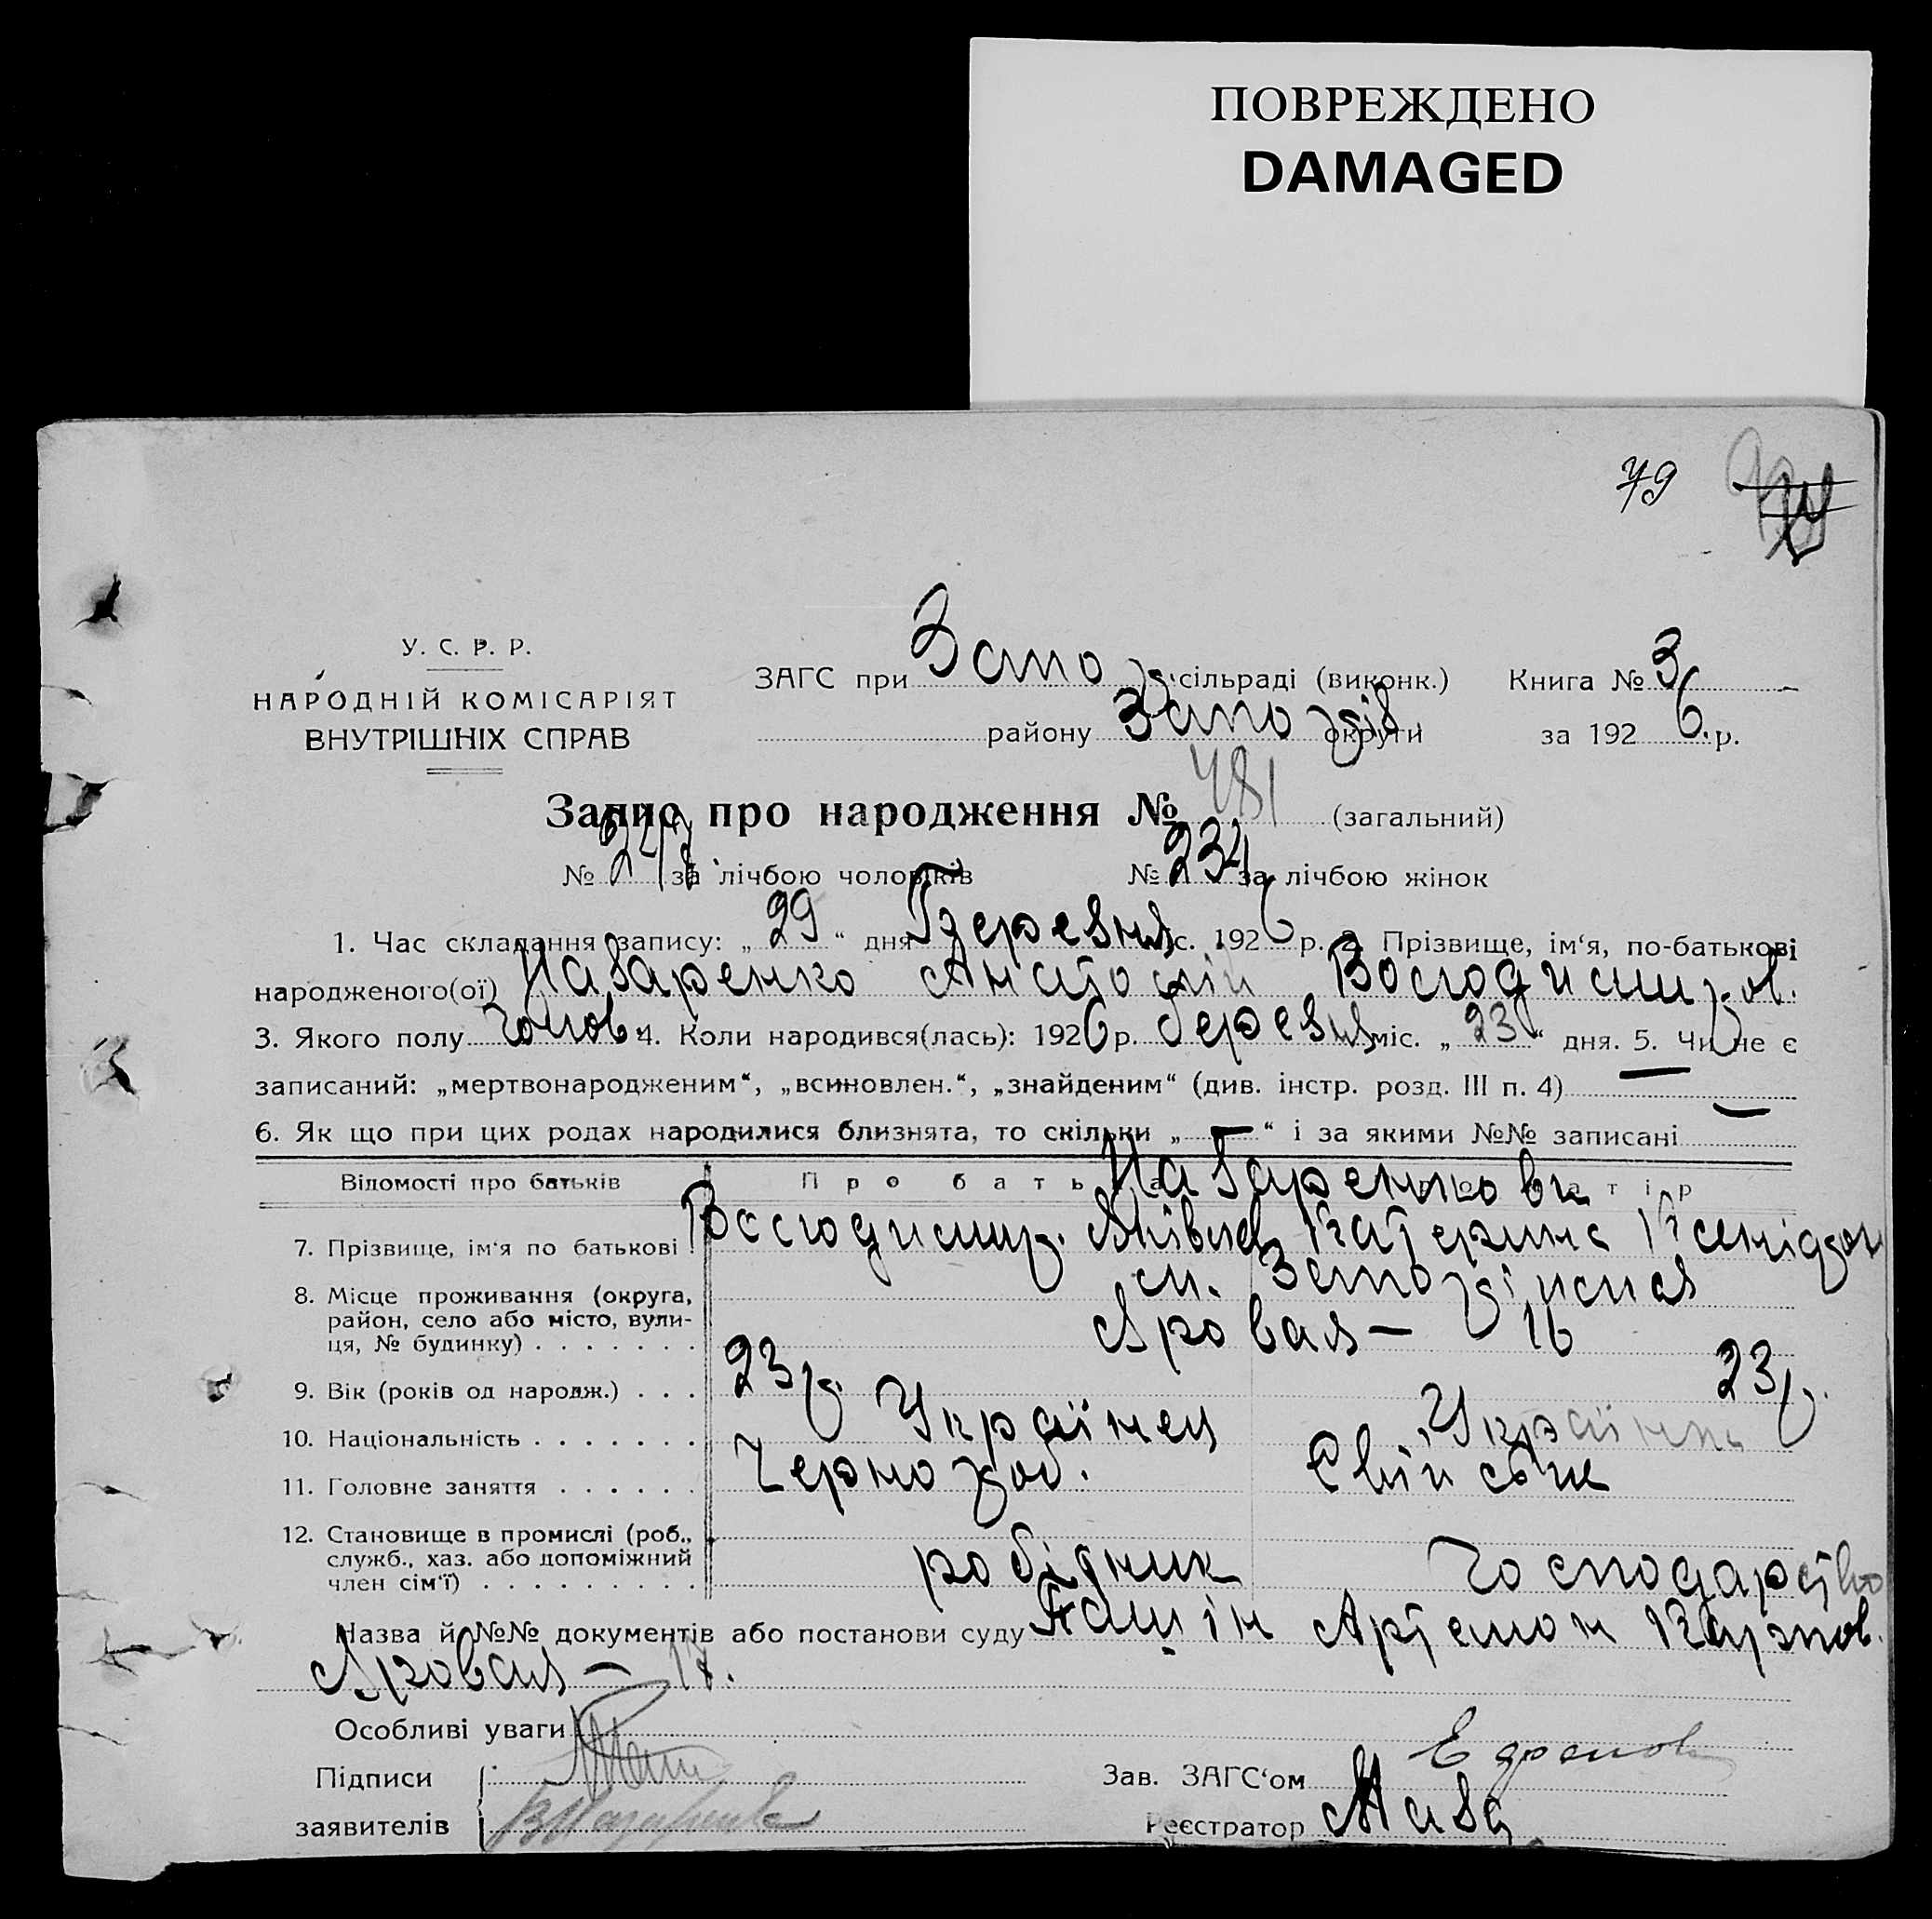 ПОВРЕЖДЕНО
DAMAGED
79
У. С. Р. Р.
НАРОДНІЙ КОМІСАРІЯТ
ВНУТРІШНІХ СПРАВ
ЗАГС при Запо сільраді (виконк.) Книга № 3
району Запоріз округи за 1926 р.
Запис про народження № 481 (загальний)
№ 247 за лічбою чоловіків № 234 за лічбою жінок
1. Час складання запису: „ 29 “ дня Березня с. 1926 р. 2. Прізвище, ім‘я, по-батькові
народженого(ої) Назаренко Анатолій Володимиров.
3. Якого полу Чолов. 4. Коли народився(лась): 1926 р. березня міс. „ 23 “ дня. 5. Чи не є
записаний: „мертвонародженим“, „всиновлен.“, „знайденим“ (див. інстр. розд. III п. 4) —
6. Як що при цих родах народилися близнята, то скільки „ — “ і за якими №№ записані —
Відомості про батьків Про батька Про матір
Назаренкови
7. Прізвище, ім‘я по батькові Володимир. Яківлев Катерина
8. Місце проживання (округа, район, село або місто, вули-ця, № будинку) . . . . . . . м. Запоріжжя
Яровая — 16
9. Вік (років од народж.) . . . 23 р. 23 р.
10. Національність . . . . . . . Українец Українка
11. Головне заняття . . . . . . Чернороб. Свійське
12. Становище в промислі (роб., служб., хаз. або допоміжний член сім‘ї) . . . . . . . . . робідник господарство
Назва й №№ документів або постанови суду Артемон Карпов.
Яровая — 17.
Особливі уваги
Підписи
заявителів В Назаренко
Зав. ЗАГС‘ом
Реєстратор